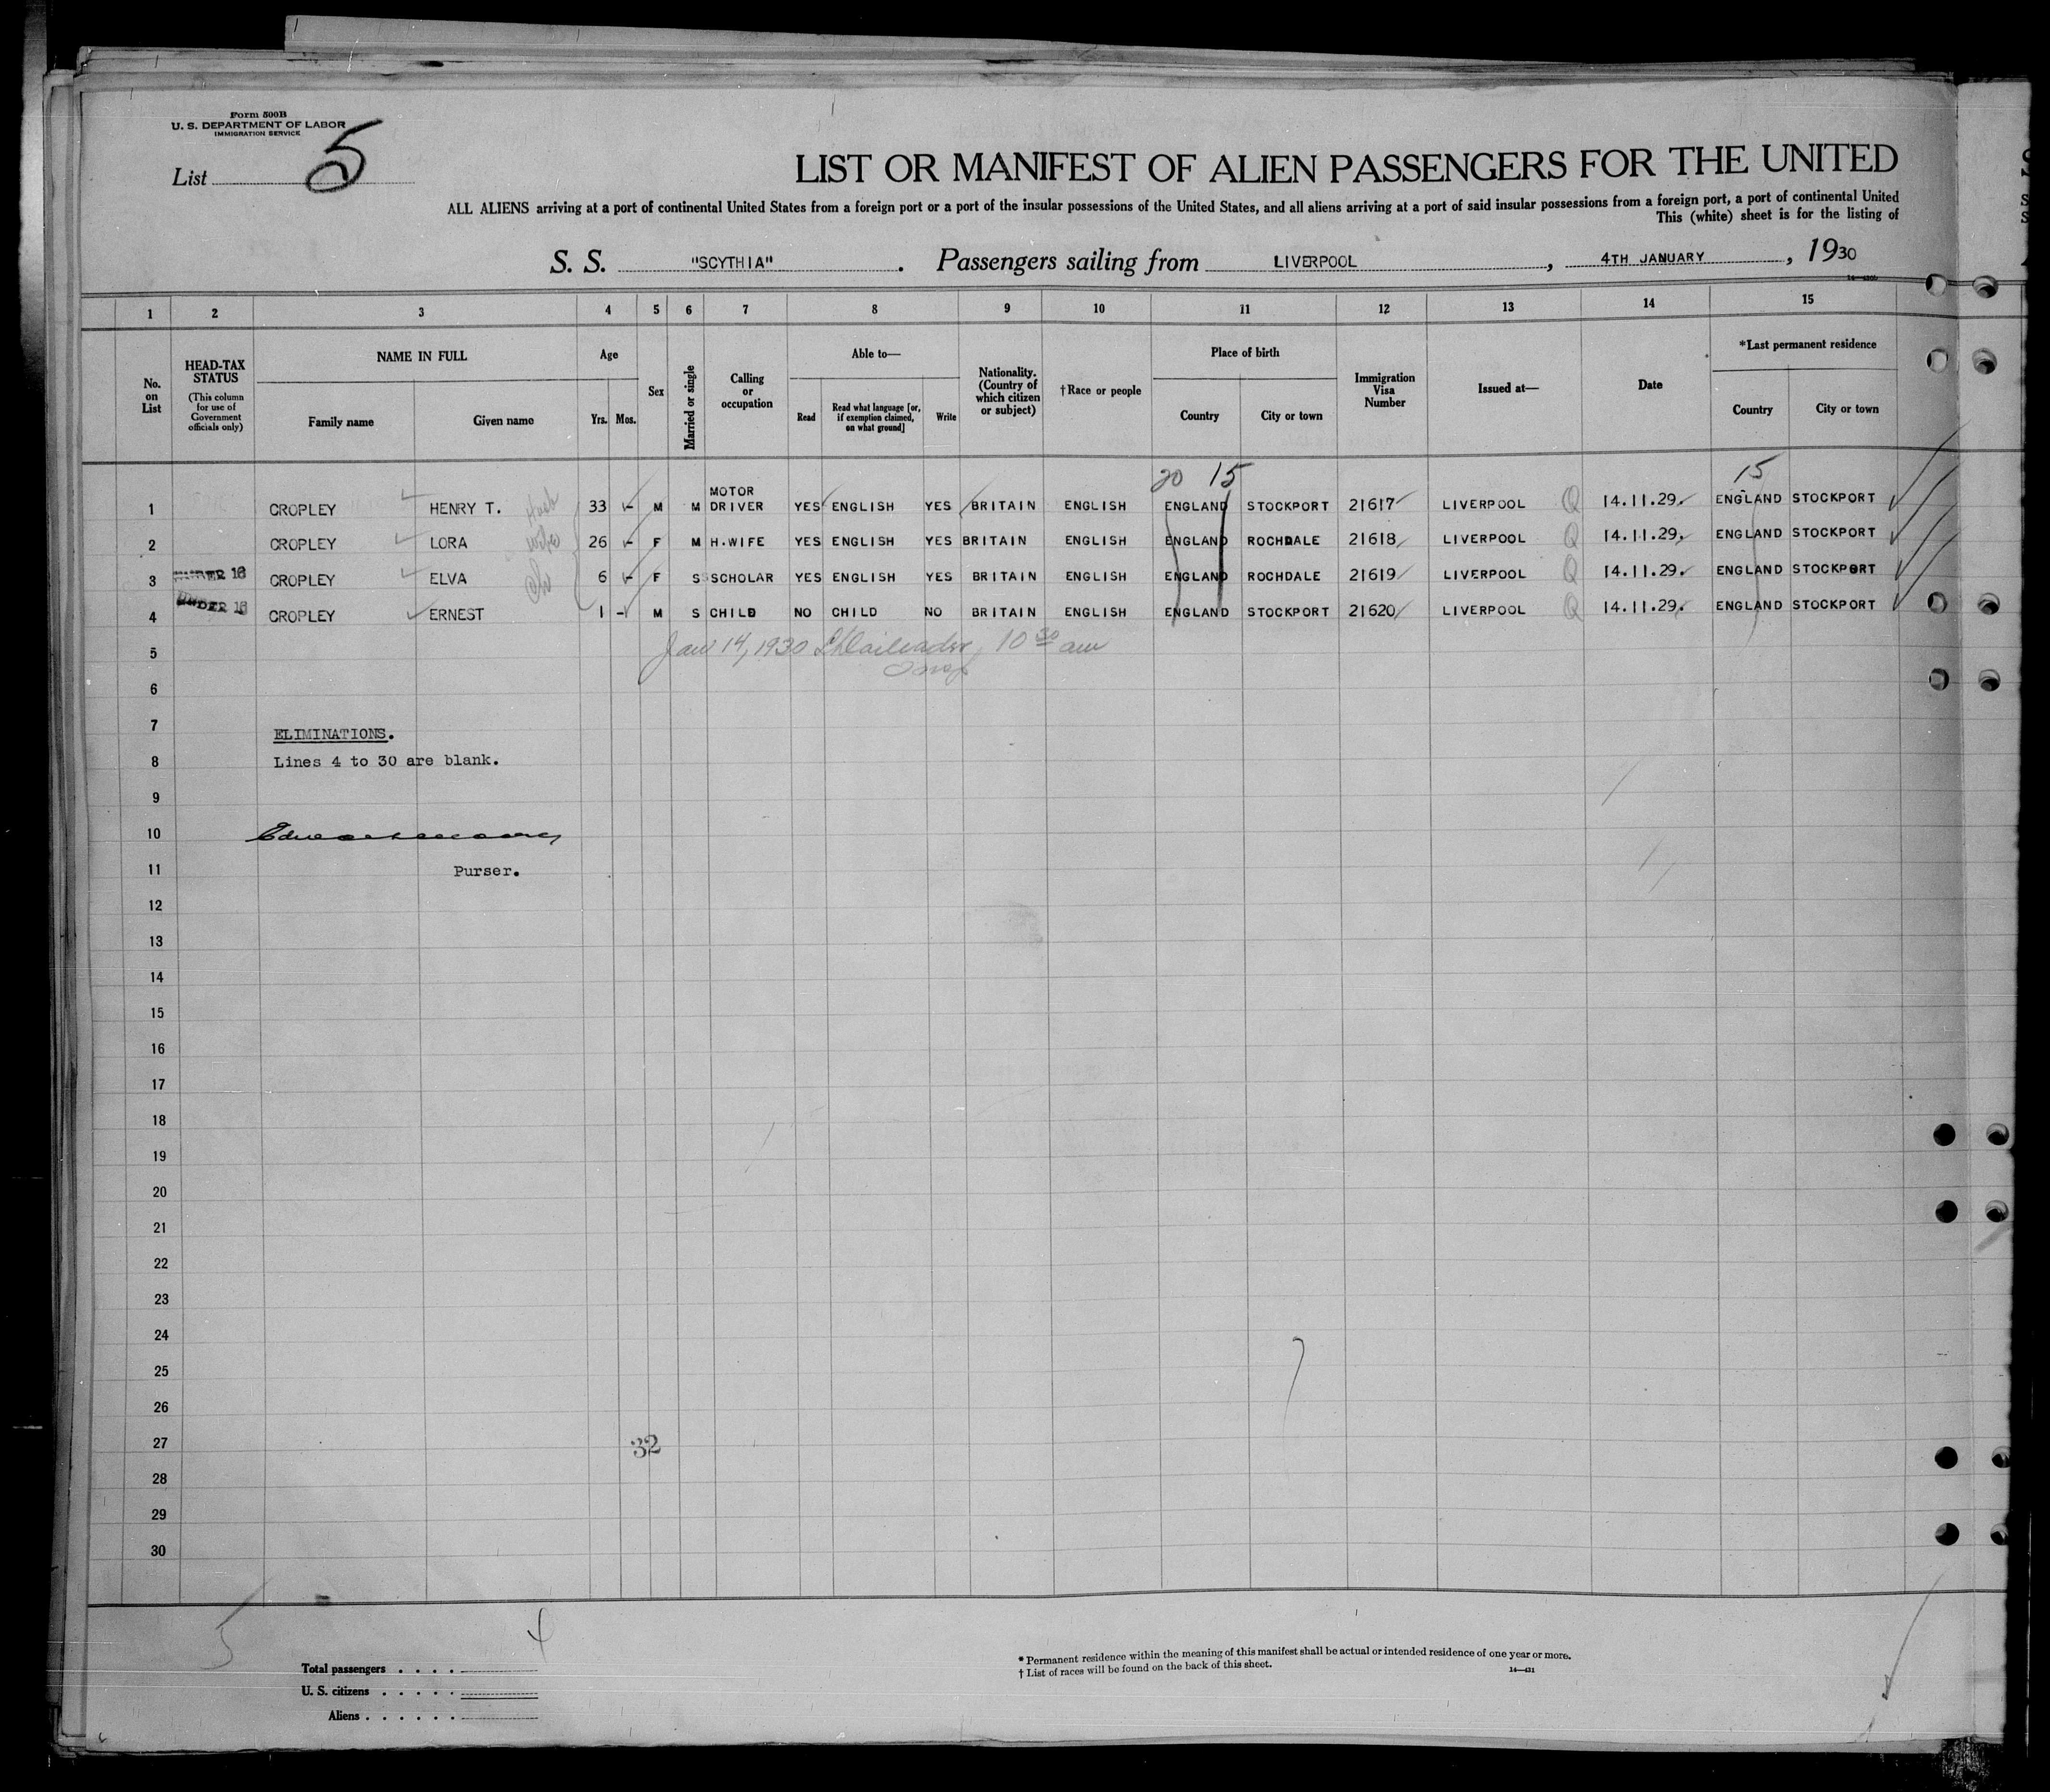 Form 500B
U. S. DEPARTMENT OF LABOR
IMMIGRATION SERVICE
List 5
LIST OR MANIFEST OF ALIEN PASSENGERS FOR THE UNITED
ALL ALIENS arriving at a port of continental United States from a foreign port or a port of the insular possessions of the United States, and all aliens arriving at a port of said insular possessions from a foreign port, a port of continental United
This (white) sheet is for the listing of
S. S. "SCYTHIA". Passengers sailing from LIVERPOOL, 4TH JANUARY, 1930
1 2 3 4 5 6 7 8 9 10 11 12 13 14 15
No. on List
HEAD-TAX STATUS (This column for use of Government officials only)
NAME IN FULL
Family name
Given name
Age
Yrs. Mos.
Sex
Married or single
Calling or occupation
Able to—
Read
Read what language [or, if exemption claimed, on what ground]
Write
Nationality. (Country of which citizen or subject)
†Race or people
Place of birth
Country
City or town
Immigration Visa Number
Issued at—
Date
*Last permanent residence
Country
City or town
20 15 15
1 CROPLEY HENRY T. 33 - M M MOTOR DRIVER YES ENGLISH YES BRITAIN ENGLISH ENGLAND STOCKPORT 21617 LIVERPOOL Q 14.11.29. ENGLAND STOCKPORT
2 CROPLEY LORA wife 26 - F M H.WIFE YES ENGLISH YES BRITAIN ENGLISH ENGLAND ROCHDALE 21618 LIVERPOOL Q 14.11.29. ENGLAND STOCKPORT
3 UNDER 16 CROPLEY ELVA ch 6 - F S SCHOLAR YES ENGLISH YES BRITAIN ENGLISH ENGLAND ROCHDALE 21619 LIVERPOOL Q 14.11.29. ENGLAND STOCKPORT
4 UNDER 16 CROPLEY ERNEST 1 - M S CHILD NO CHILD NO BRITAIN ENGLISH ENGLAND STOCKPORT 21620 LIVERPOOL Q 14.11.29. ENGLAND STOCKPORT
5 Jan 14, 1930 10 30 am
6
7 ELIMINATIONS.
8 Lines 4 to 30 are blank.
9
10
11 Purser.
12
13
14
15
16
17
18
19
20
21
22
23
24
25
26
27 32
28
29
30
5 4
Total passengers
U. S. citizens
Aliens
* Permanent residence within the meaning of this manifest shall be actual or intended residence of one year or more.
† List of races will be found on the back of this sheet.
14—431